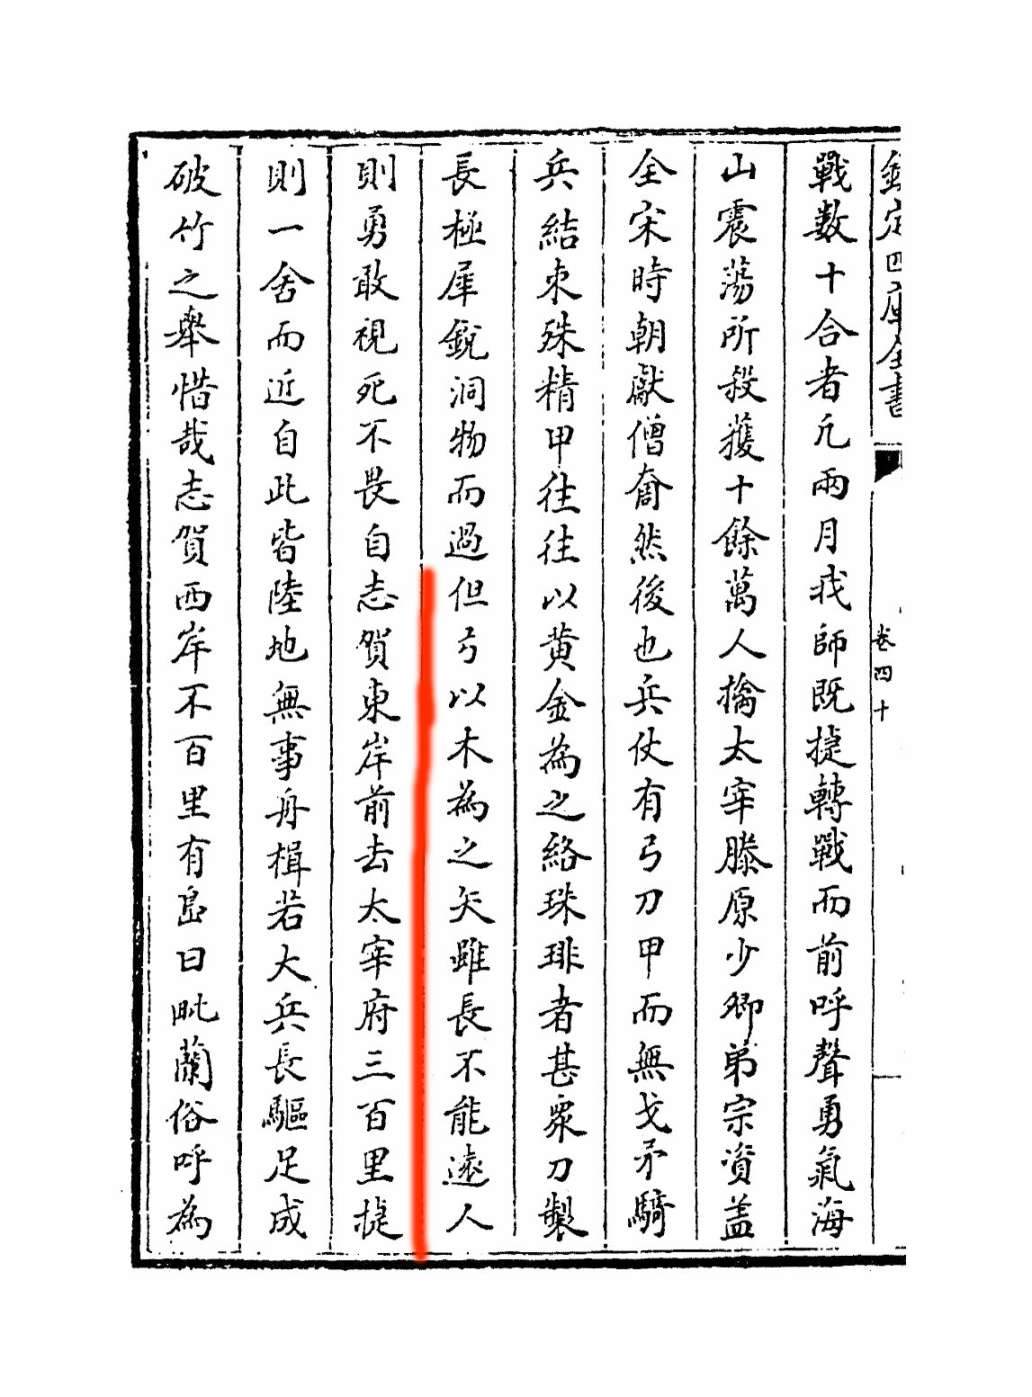 欽定四庫全書
卷四十
戰数十合者凢兩月我師既捷轉戰而前呼聲勇氣海
山震蕩所殺獲十餘萬人擒太宰滕原少卿弟宗資盖
全宋時朝獻僧奝然後也兵仗有弓刀甲而無戈矛騎
兵結束殊精甲往往以黄金為之絡珠琲者甚衆刀製
長極犀銳洞物而過但弓以木為之矢雖長不能逺人
則勇敢視死不畏自志賀東岸前去太宰府三百里捷
則一舍而近自此皆陸地無事舟楫若大兵長驅足成
破竹之舉惜哉志賀西岸不百里有島曰毗蘭俗呼為